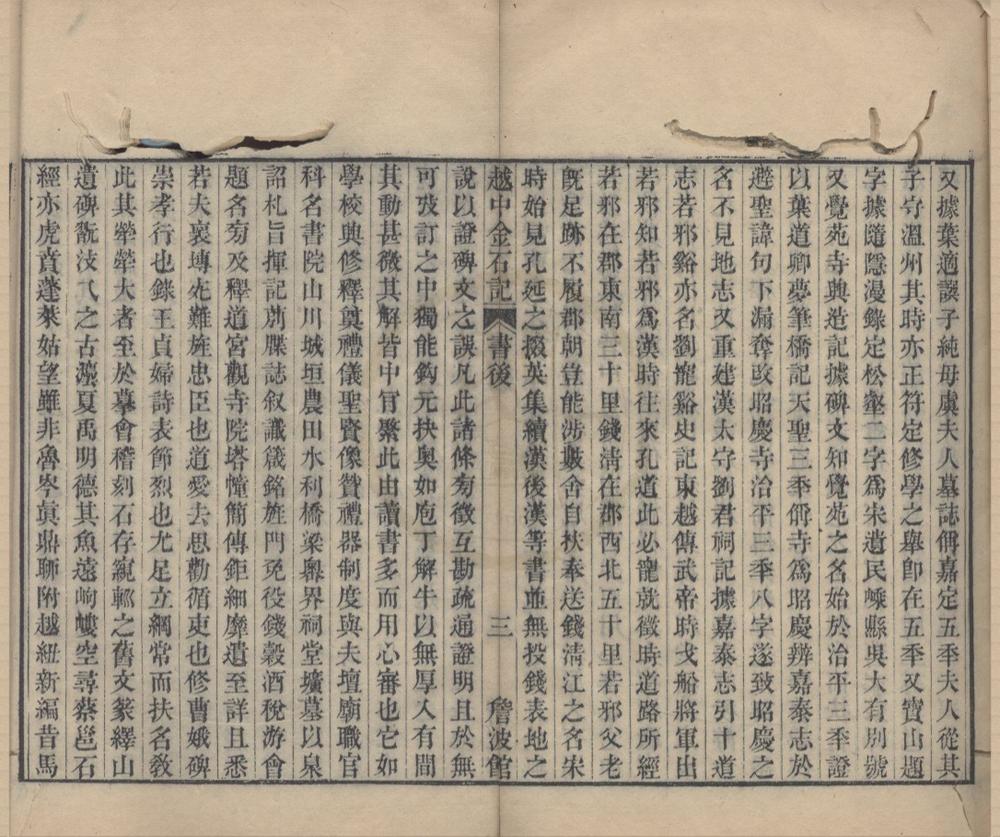 又據葉適譔子純母虞夫人墓誌偁嘉定五秊夫人從其
子守溫州其時亦正符定修學之舉卽在五秊又寶山題
字據隨隱漫錄定松壑二字爲宋遺民嵊縣吳大有別號
又覺苑寺興造記據碑文知覺苑之名始於治平三秊證
以葉道卿夢筆橋記天聖三秊偁寺爲昭慶辨嘉泰志於
避聖諱句下漏奪改昭慶寺治平三秊八字遂致昭慶之
名不見地志又重建漢太守劉君祠記據嘉泰志引十道
志若邪谿亦名劉寵谿史記東越傳武帝時戈船將軍出
若邪知若邪爲漢時往來孔道此必寵就徵時道路所經
若邪在郡東南三十里錢淸在郡西北五十里若邪父老
旣足跡不履郡朝豈能涉數舍自扶奉送錢淸江之名宋
時始見孔延之掇英集續漢後漢等書並無投錢表地之
越中金石記 書後 三 詹波館
說以證碑文之誤凡此諸條旁徵互勘疏通證明且於無
可攷訂之中獨能鈎元抉奧如庖丁解牛以無厚入有間
其動甚微其解皆中肎綮此由讀書多而用心審也它如
學校興修釋奠禮儀聖賢像贊禮器制度與夫壇廟職官
科名書院山川城垣農田水利橋梁界祠堂壙墓以泉
詔札旨揮記刖牒誌敘識箴銘旌門免役錢穀酒稅游會
題名旁及釋道宮觀寺院塔幢簡傳鉅細靡遺至詳且悉
若夫裒塼旌忠臣也道愛去思勸循吏也修曹娥碑
崇孝行也錄王貞婦詩表節烈也尤足立綱常而扶名敎
此其犖犖大者至於摹會稽刻石存窺郼之舊文篆繹山
遺碑翫汥八之古灋夏禹明德其魚遠岣嶁空尋蔡邕石
經亦虎賁蓬萊姑望雖非魯岑眞鼎聊附越紐新編昔馬